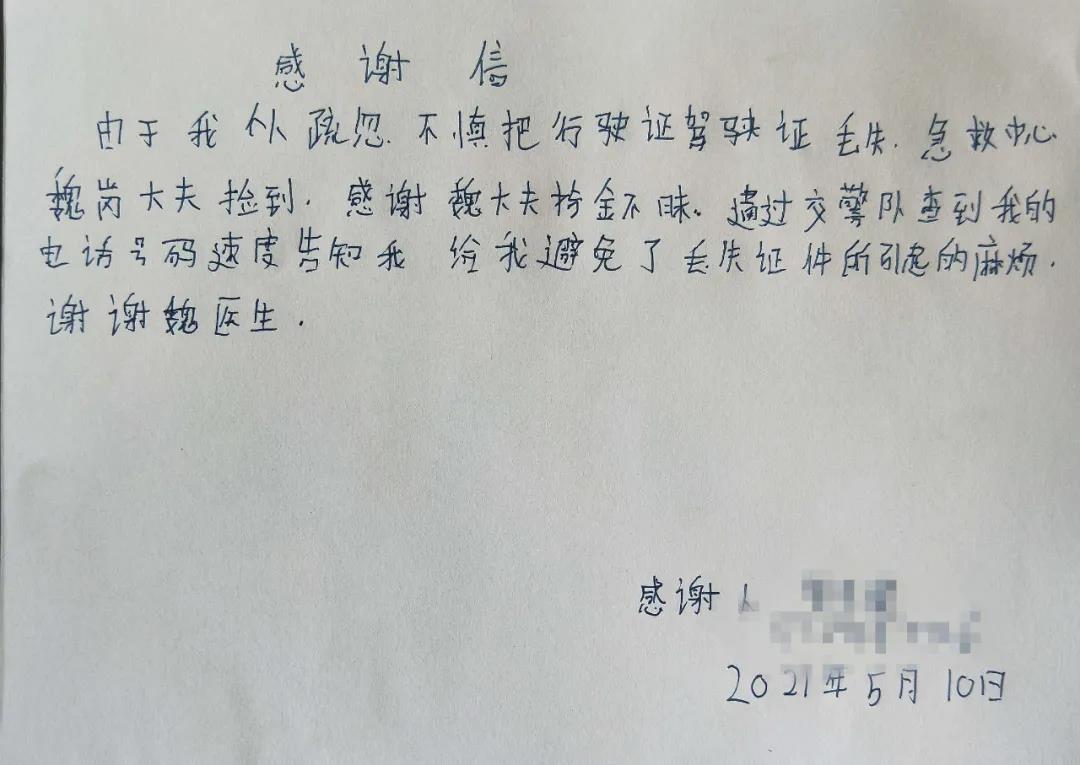 感谢信
由于我个人疏忽.不慎把行驶证驾驶证丢失.急救中心
魏岗大夫捡到.感谢魏大夫拾金不昧.通过交警队查到我的
电话号码速度告知我 给我避免了丢失证件所引起的麻烦.
谢谢魏医生.
感谢人
2021年5月10日